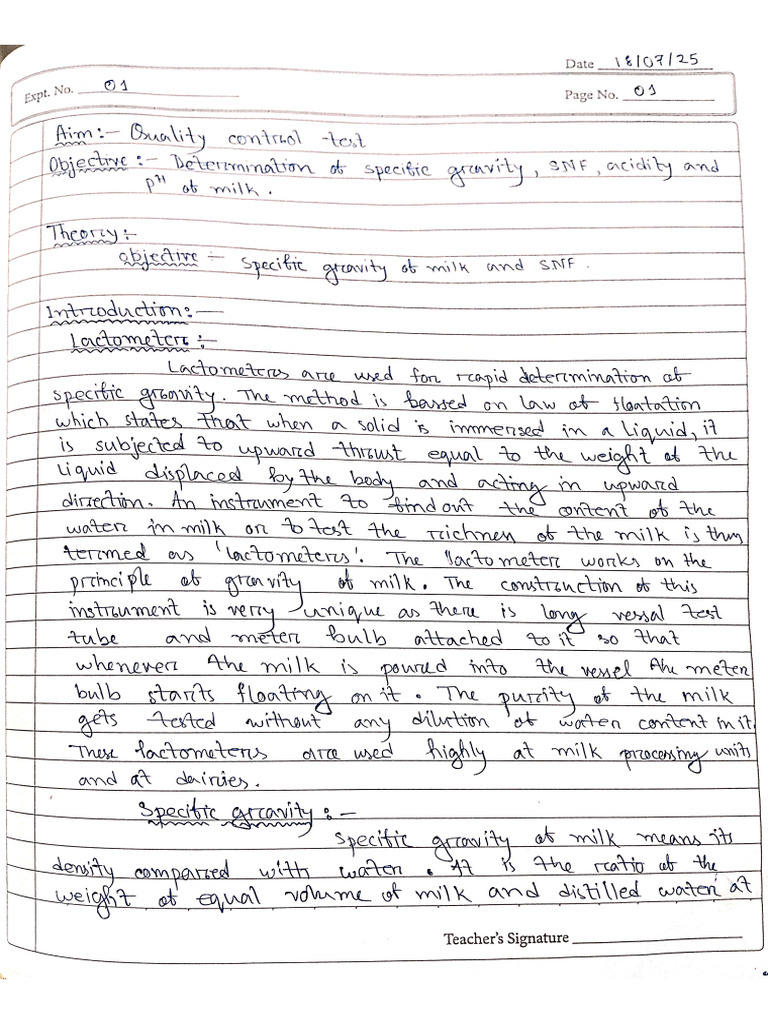 Date 18/07/25
Expt. No. 01
Page No. 01
Aim:- Quality control test
Objective:- Determination of specific gravity, SNF, acidity and
pH of milk.
Theory:-
objective - specific gravity of milk and SNF.
Introduction:-
Lactometer:-
Lactometers are used for rapid determination of
specific gravity. The method is bassed on law of floatation
which states that when a solid is immersed in a liquid, it
is subjected to upward thrust equal to the weight of the
liquid displaced by the body and acting in upward
direction. An instrument to find out the content of the
water in milk or to test the richness of the milk is thus
termed as 'lactometers'. The lactometer works on the
principle of gravity of milk. The construction of this
instrument is very unique as there is long vessal test
tube and meter bulb attached to it so that
whenever the milk is poured into the vessel the meter
bulb starts floating on it. The purity of the milk
gets tested without any dilution of water content in it.
These lactometers are used highly at milk processing units
and at dairies.
Specific gravity:-
specific gravity of milk means its
density compared with water. It is the ratio of the
weight of equal volume of milk and distilled water at
Teacher's Signature